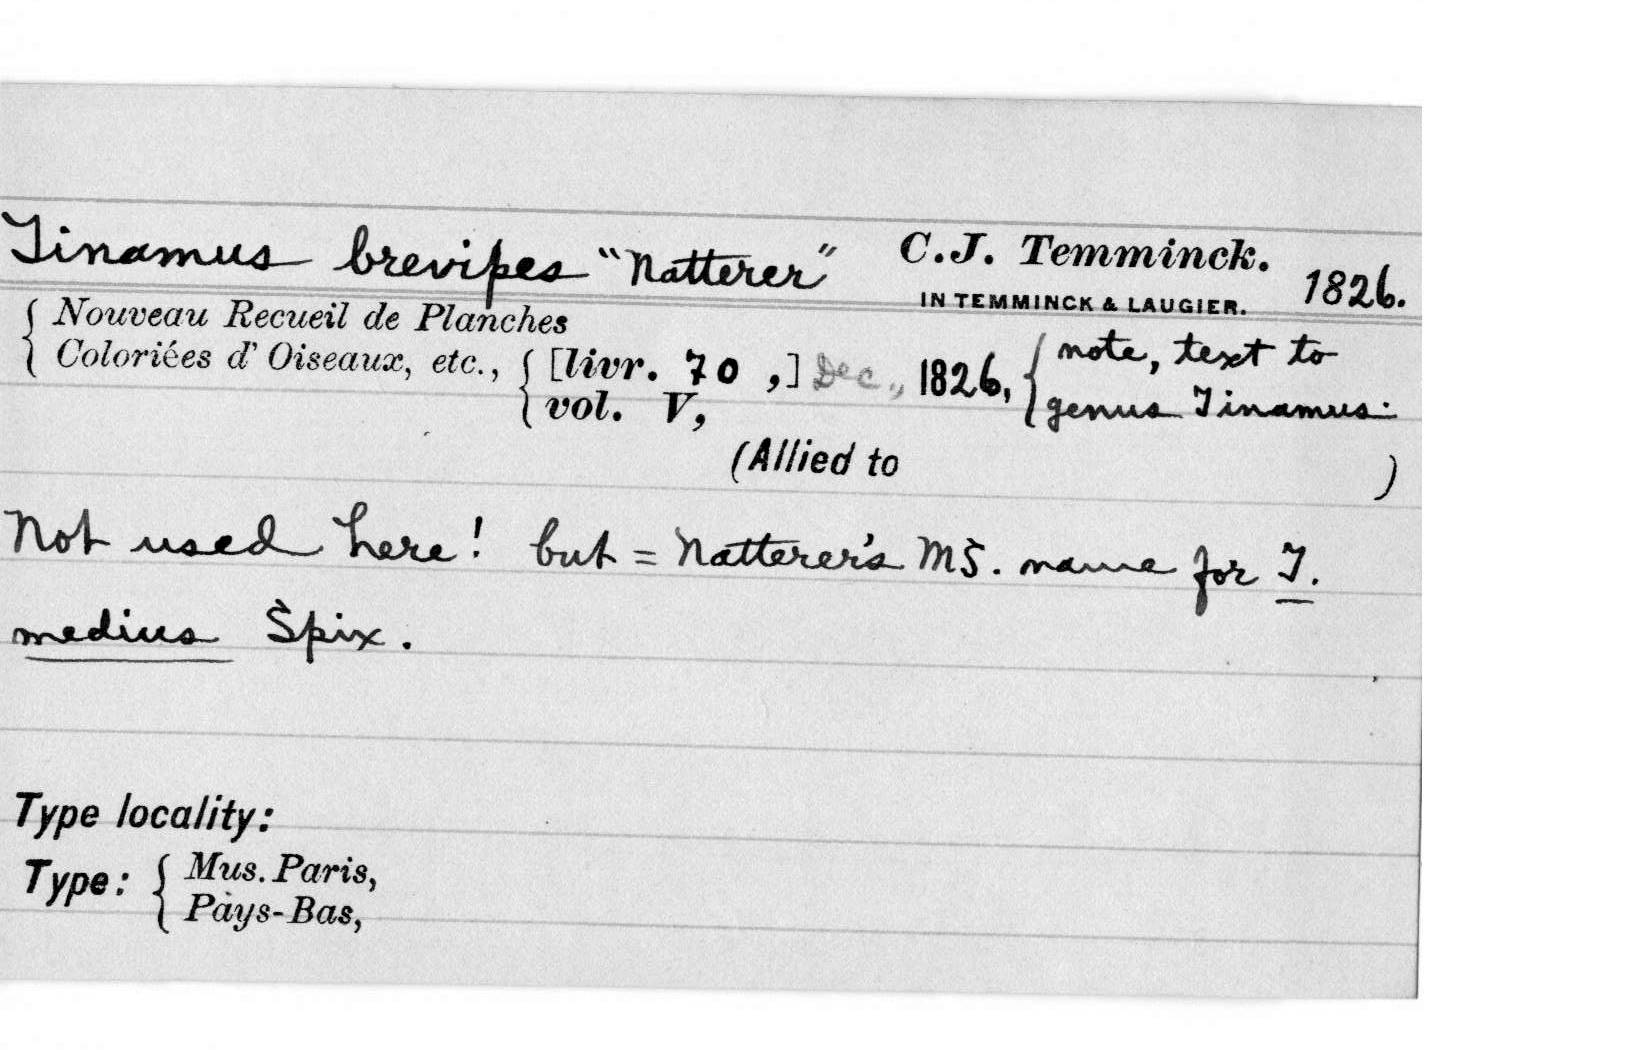 Tinamus brevipes "Natterer" C.J. Temminck. 1826.
IN TEMMINCK & LAUGIER.
{ Nouveau Recueil de Planches
Coloriées d'Oiseaux, etc., { [livr. 70 ,] Dec., 1826, { note, text to
vol. V, genus Tinamus.
(Allied to )
Not used here! but = Natterer's MS. name for T.
medius Spix.
Type locality:
Type: { Mus. Paris,
Pays-Bas,